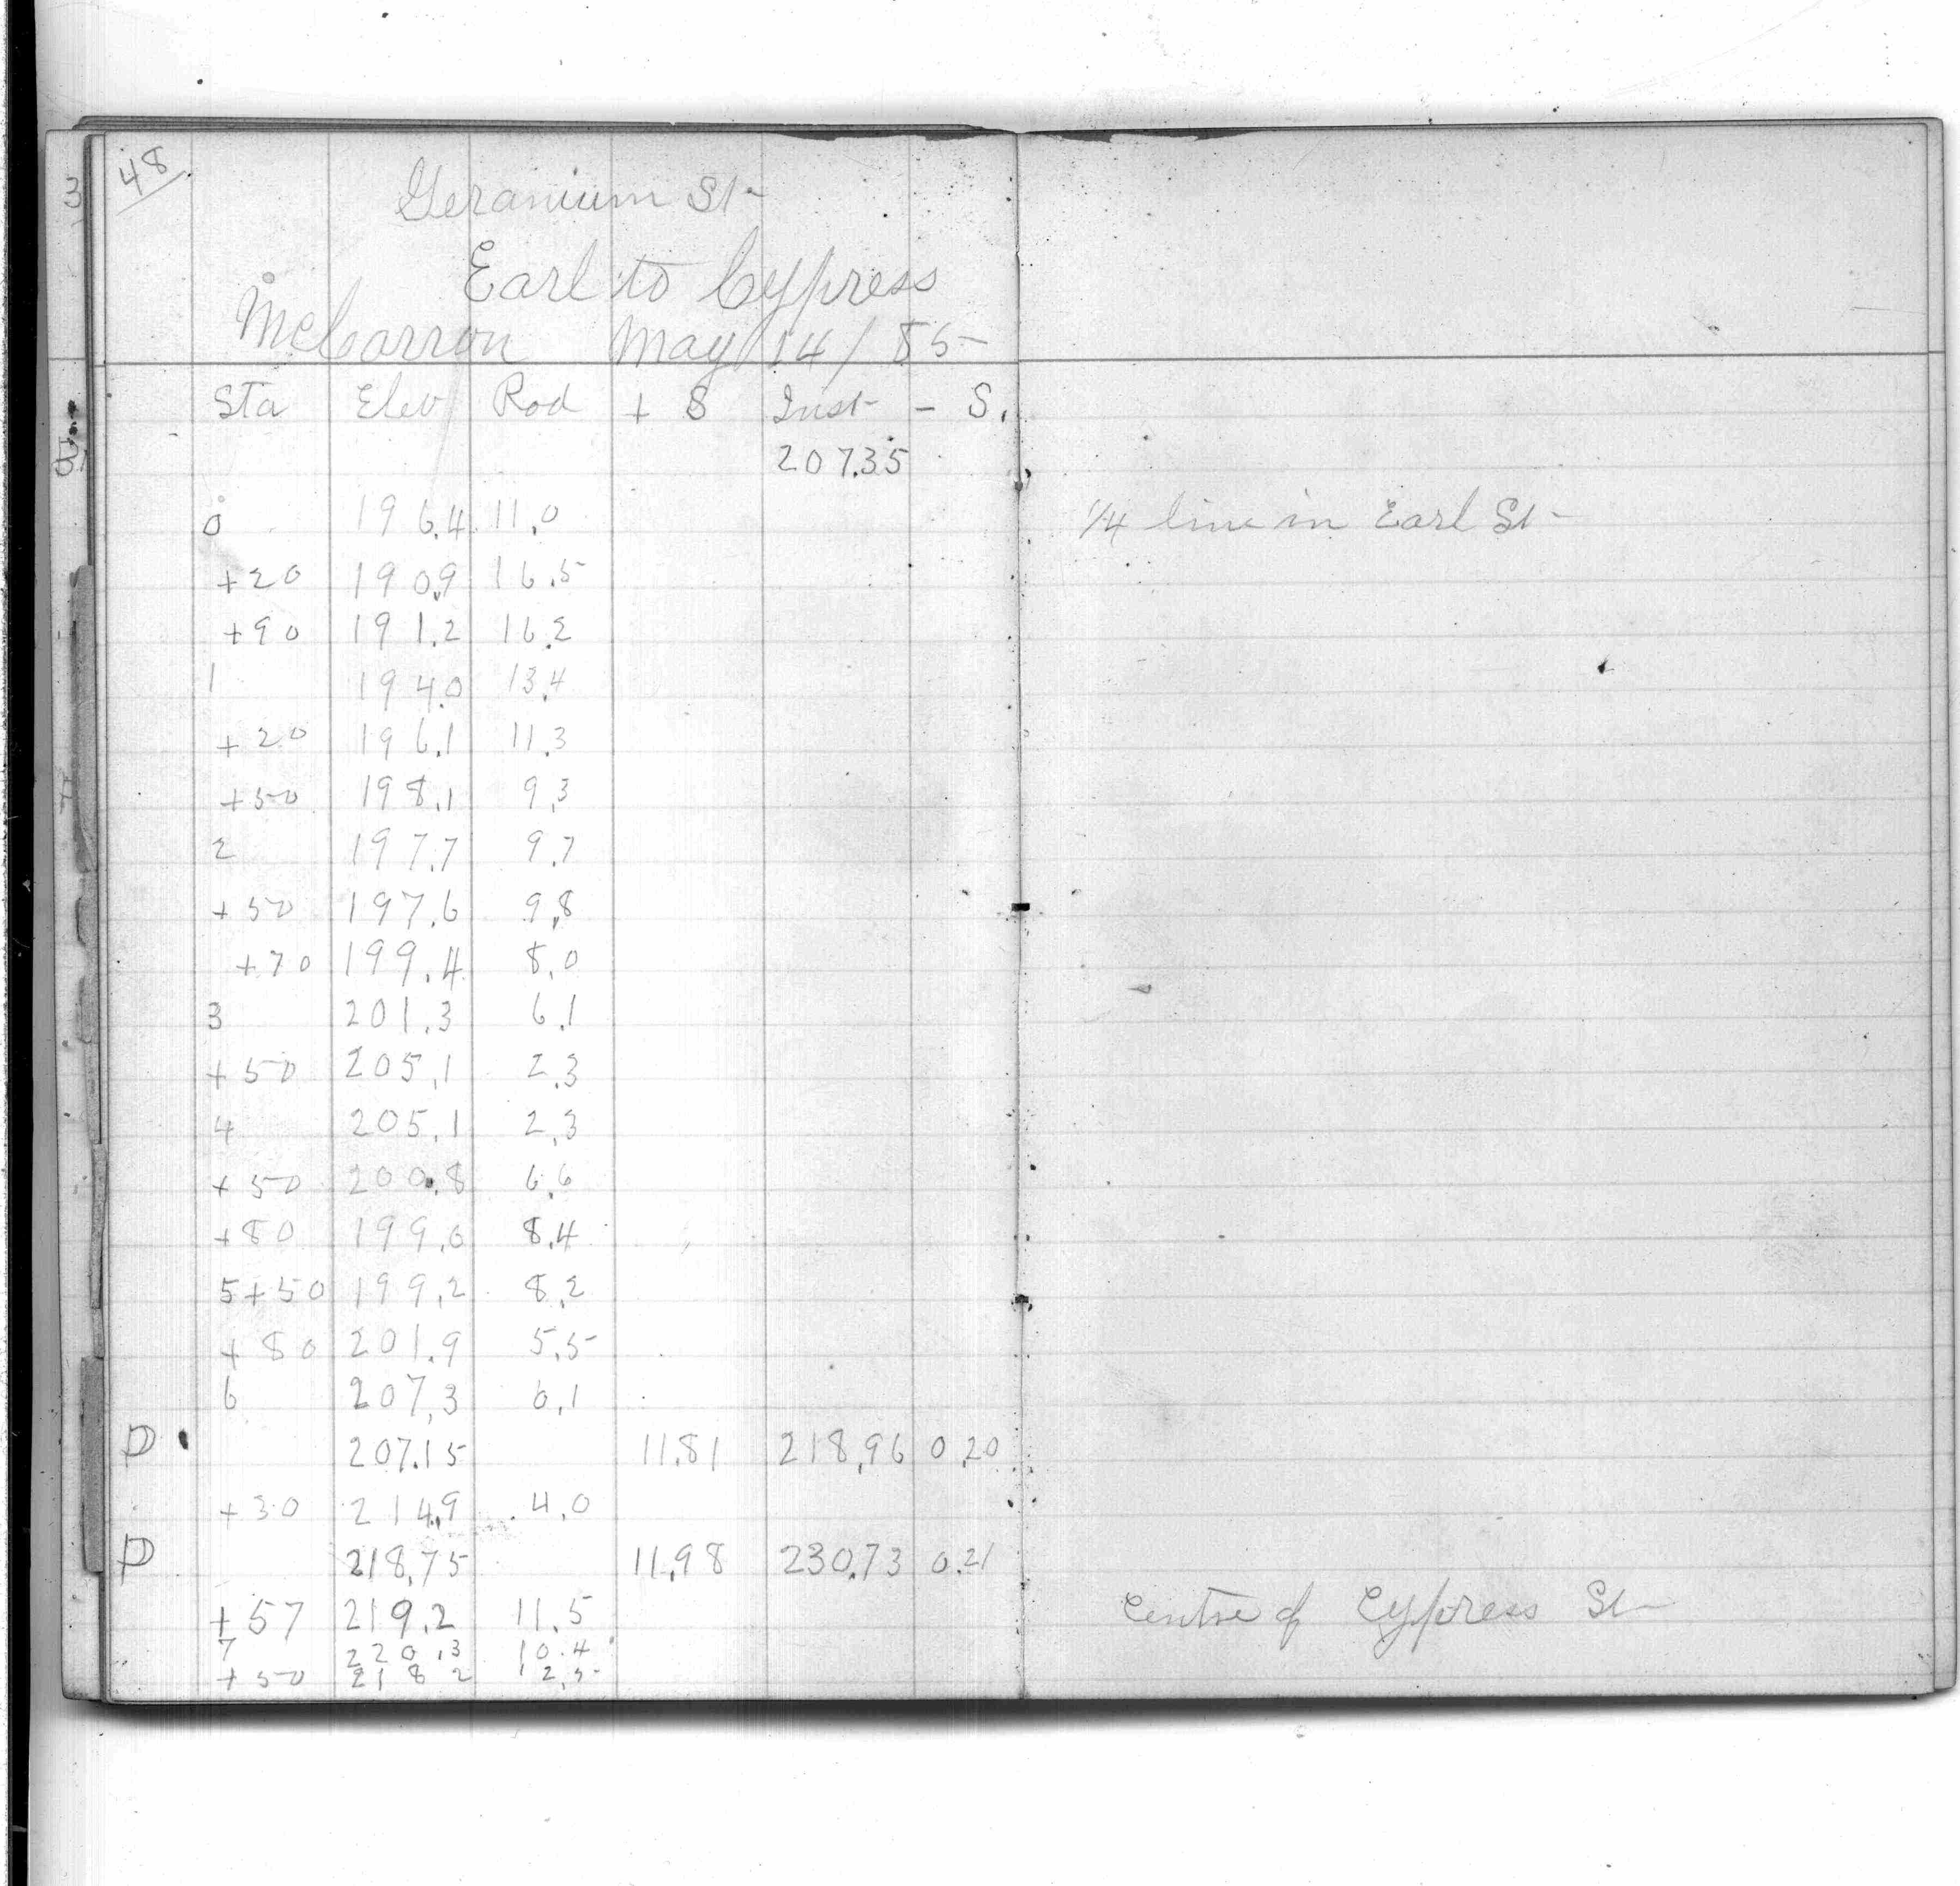 48
Geranium St
Earl to Cypress
McCarron May 14/85
Sta Elev Rod + S Inst - S.
207.35
0 196.4 11.0 1/4 line in Earl St
+20 190.9 16.5
+90 191.2 16.2
1 194.0 13.4
+20 196.1 11.3
+50 198.1 9.3
2 197.7 9.7
+50 197.6 9.8
+70 199.4 8.0
3 201.3 6.1
+50 205.1 2.3
4 205.1 2.3
+50 200.8 6.6
+80 199.0 8.4
5+50 199.2 8.2
+80 201.9 5.5
6 207.3 0.1
P 207.15 11.81 218.96 0.20
+30 214.9 4.0
P 218.75 11.98 230.73 0.21
+57 219.2 11.5 Centre of Cypress St
7 220.3 10.4
+50 218 2 12.5